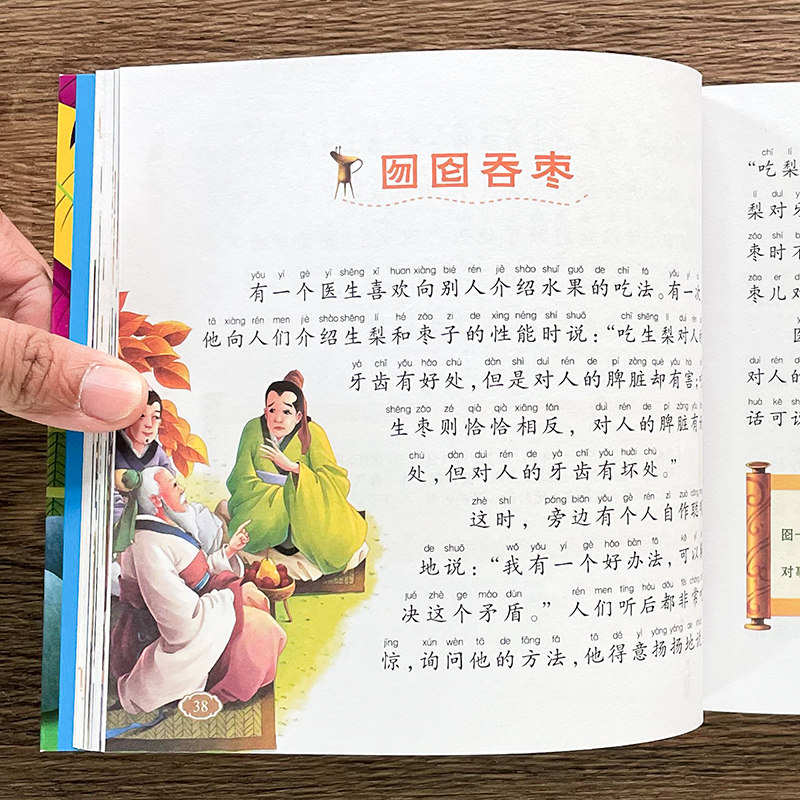 囫囵吞枣
yǒu yí gè yī shēng xǐ huan xiàng bié rén jiè shào shuǐ guǒ de chī fǎ yǒu yí
有一个医生喜欢向别人介绍水果的吃法。有一次
tā xiàng rén men jiè shào shēng lí hé zǎo zi de xìng néng shí shuō chī shēng lí duì rén
他向人们介绍生梨和枣子的性能时说：“吃生梨对人
yá chǐ yǒu hǎo chù dàn shì duì rén de pí zàng què yǒu hài
牙齿有好处，但是对人的脾脏却有害；
shēng zǎo zé qià qià xiāng fǎn duì rén de pí zàng yǒu
生枣则恰恰相反，对人的脾脏有
chù dàn duì rén de yá chǐ yǒu huài chù
处，但对人的牙齿有坏处。”
zhè shí páng biān yǒu gè rén zì zuò cōng
这时，旁边有个人自作聪
de shuō wǒ yǒu yí gè hǎo bàn fǎ kě yǐ
地说：“我有一个好办法，可以
jué zhè ge máo dùn rén men tīng hòu dōu fēi cháng
决这个矛盾。”人们听后都非常
jīng xún wèn tā de fāng fǎ tā dé yì yáng yáng de shuō
惊，询问他的方法，他得意扬扬地说
38
chī lí
“吃梨
lí duì
梨对
zǎo shí
枣时
zǎo er
枣儿对
duì rén de
对人的
huà kě
话可说
囵一
对事